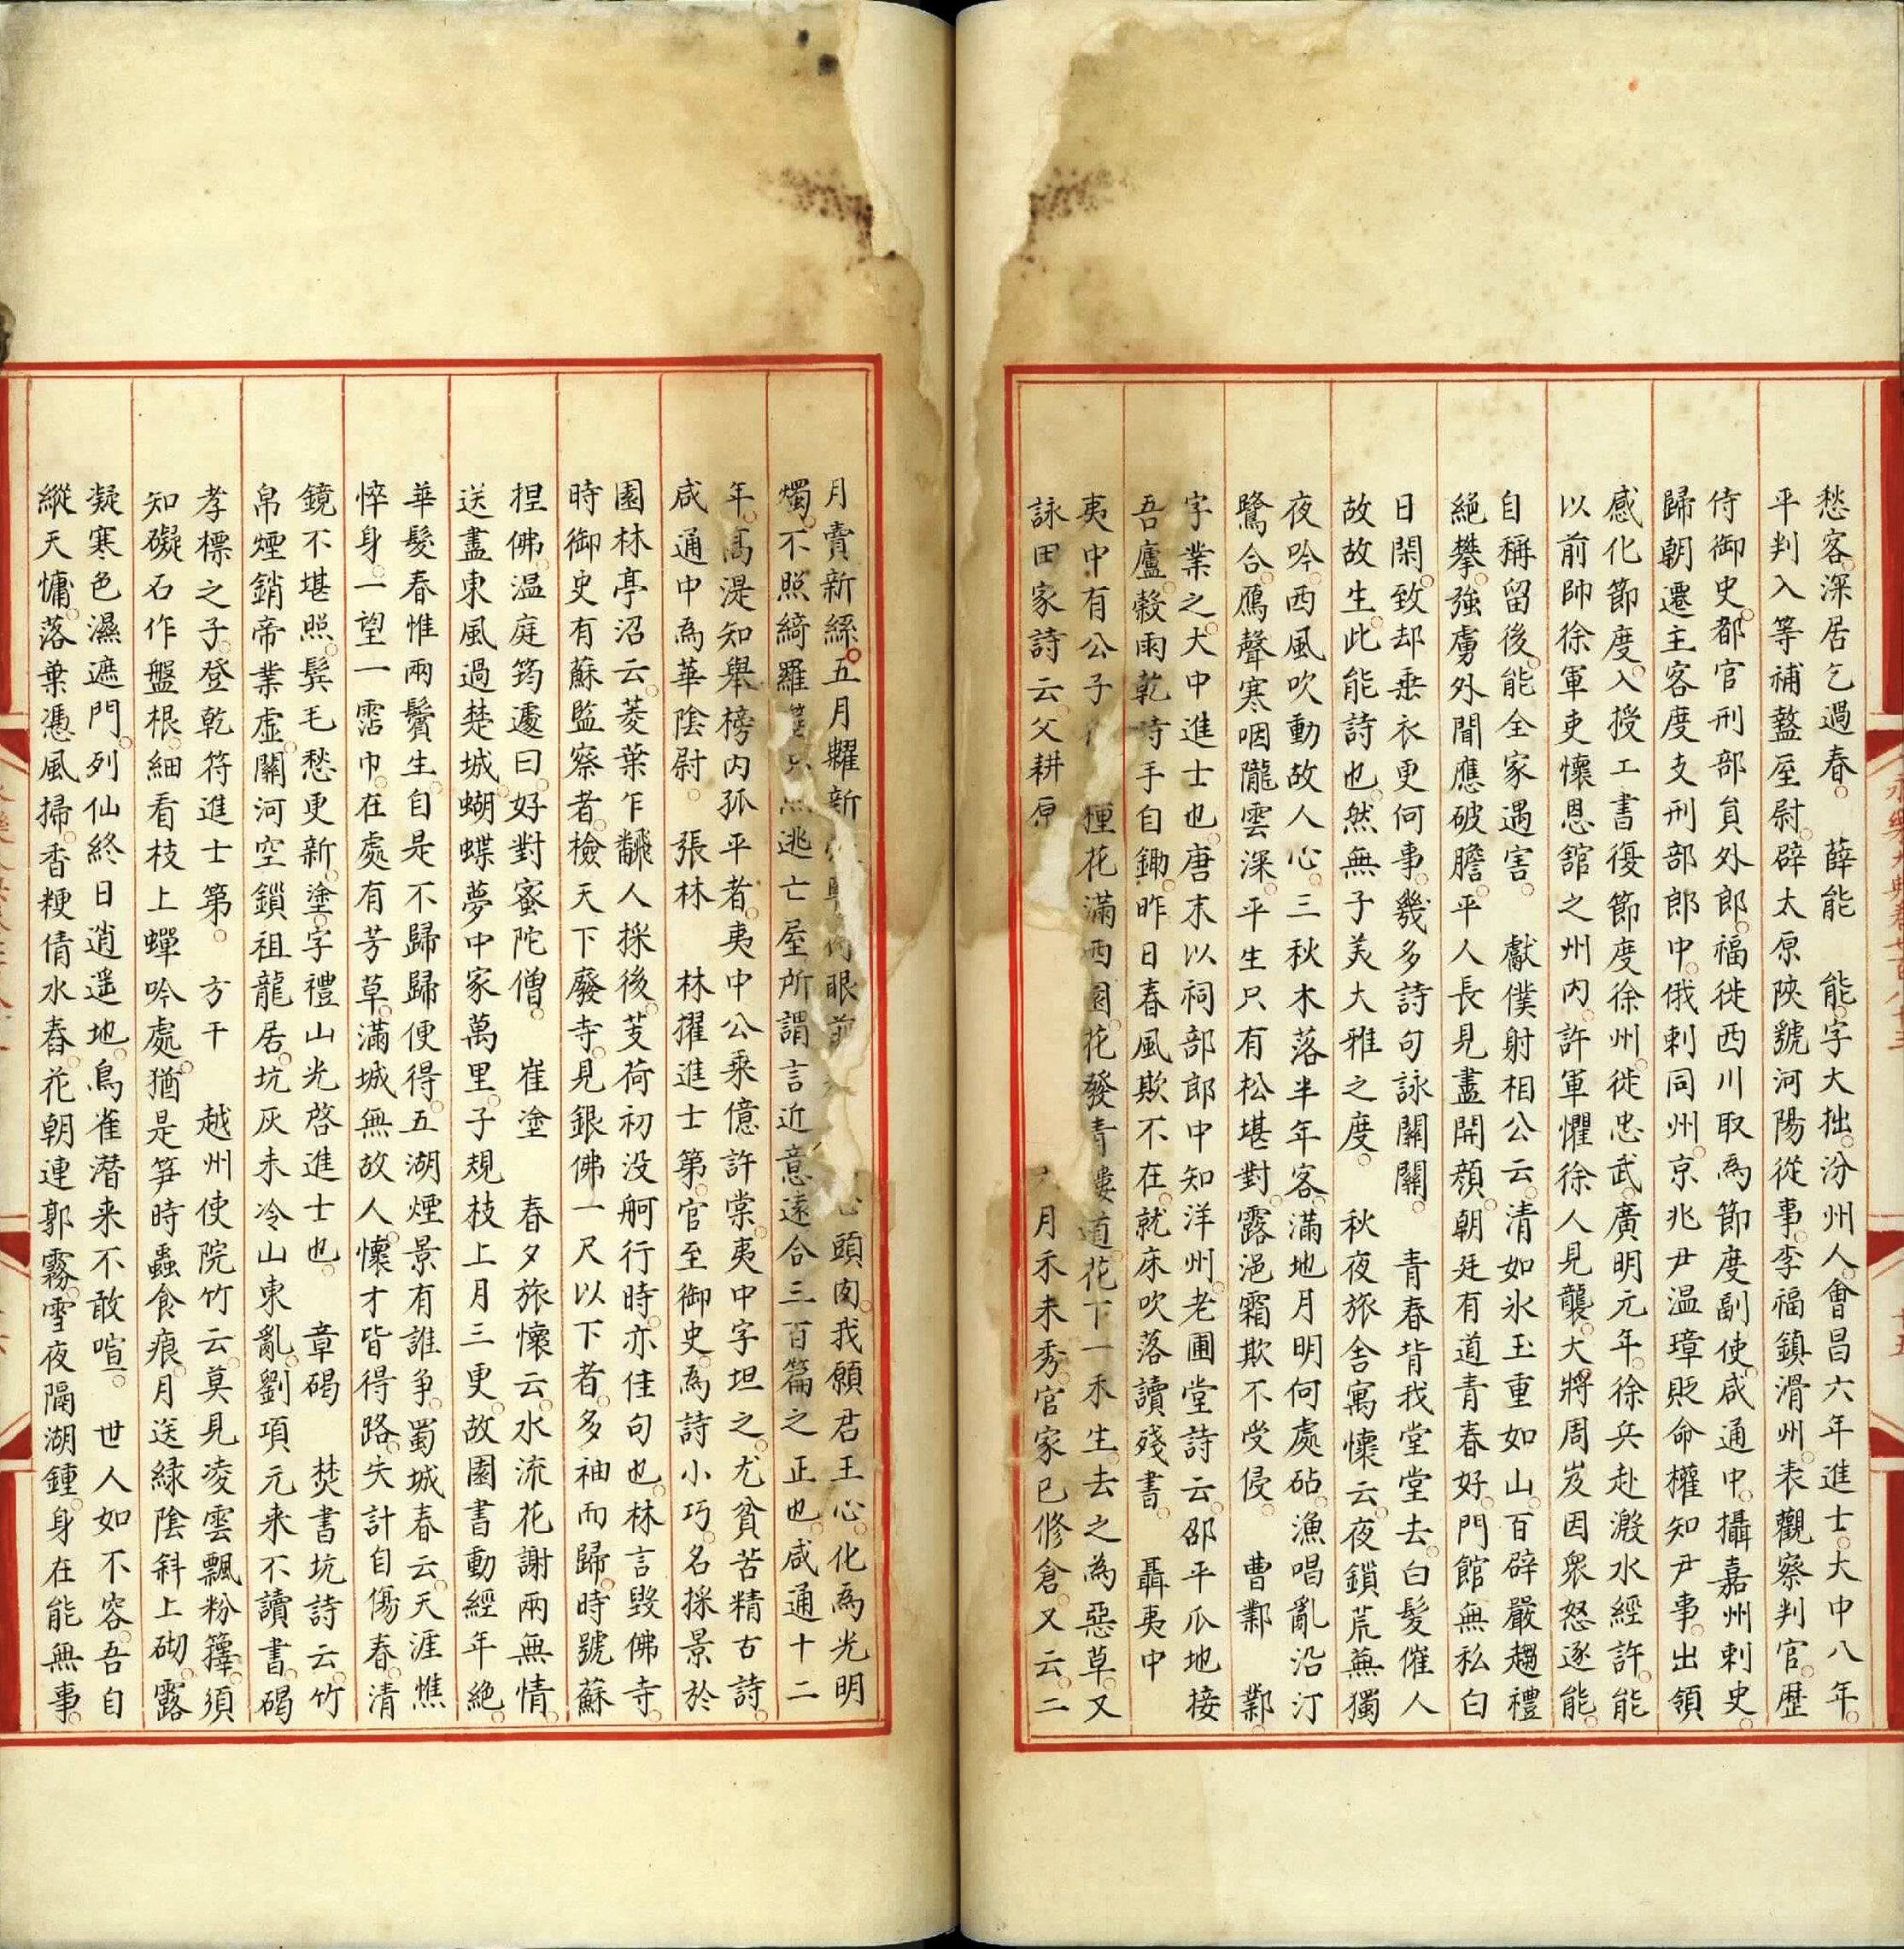 愁客。深居乞過春。 薛能 能字大拙。汾州人。會昌六年進士。大中八年。
平判入等補盩厔尉。辟太原陝虢河陽從事。李福鎮滑州。表觀察判官。歷
侍御史。都官刑部員外郎。福徙西川取為節度副使。咸通中。攝嘉州刺史。
歸朝遷主客度支刑部郎中。俄刺同州。京兆尹温璋貶命權知尹事。出領
感化節度。入授工書復節度徐州。徙忠武。廣明元年。徐兵赴溵水經許。能
以前帥徐軍吏懷恩舘之州内。許軍懼徐人見襲。大將周岌因衆怒逐能。
自稱留後。能全家遇害。 獻僕射相公云。清如氷玉重如山。百辟嚴趨禮
絕攀。強虜外聞應破膽。平人長見盡開顔。朝廷有道青春好。門館無私白
日閑。致却垂衣更何事。幾多詩句詠關關。 青春背我堂堂去。白髮催人
故故生。此能詩也。然無子美大雅之度。 秋夜旅舍寓懷云。夜鎖荒蕪獨
夜吟。西風吹動故人心。三秋木落半年客。滿地月明何處砧。漁唱亂沿汀
鷺合。鴈聲寒咽隴雲深。平生只有松堪對。露浥霜欺不受侵。 曹鄴 鄴。
字業之。大中進士也。唐末以祠部郎中知洋州。老圃堂詩云。邵平瓜地接
吾廬。穀雨乾時手自鋤。昨日春風欺不在。就床吹落讀殘書。 聶夷中
夷中有公子 種花滿西園。花發青樓道。花下一禾生。去之為惡草。又
詠田家詩云。父耕原 六月禾未秀。官家已修倉。又云。二
月賣新絲。五月糶新 眼前 心頭肉。我願君王心。化為光明
燭。不照綺羅 逃亡屋所謂言近意遠合三百篇之正也。咸通十二
年。高湜知舉。榜内孤平者。夷中公乘億許棠。夷中字坦之。尤貧苦精古詩。
咸通中為華陰尉。 張林 林擢進士第。官至御史。為詩小巧。名採景於
園林亭沼云。菱葉乍飜人採後。芰荷初没舸行時。亦佳句也。林言毀佛寺。
時御史有蘇監察者。檢天下廢寺。見銀佛一尺以下者。多袖而歸。時號蘇
捏佛。温庭筠遽曰。好對蜜陀僧。 崔塗 春夕旅懷云。水流花謝兩無情。
送盡東風過楚城。蝴蝶夢中家萬里。子規枝上月三更。故園書動經年絕。
華髮春惟兩鬢生。自是不歸歸便得。五湖煙景有誰争。蜀城春云。天涯憔
悴身。一望一霑巾。在處有芳草。滿城無故人。懷才皆得路。失計自傷春。清
鏡不堪照。鬓毛愁更新。塗字禮山光啓進士也。 章碣 焚書坑詩云。竹
帛煙銷帝業虛。關河空鎖祖龍居。坑灰未冷山東亂。劉項元来不讀書。碣
孝標之子。登乾符進士第。 方干 越州使院竹云。莫見凌雲飄粉籜。須
知礙石作盤根。細看枝上蟬吟處。猶是笋時蟲食痕。月送綠陰斜上砌。露
凝寒色濕遮門。列仙終日逍遥地。鳥雀潛来不敢喧。 世人如不容。吾自
縱天慵。落葉憑風掃。香粳倩水舂。花朝連郭霧。雪夜隔湖鍾。身在能無事。